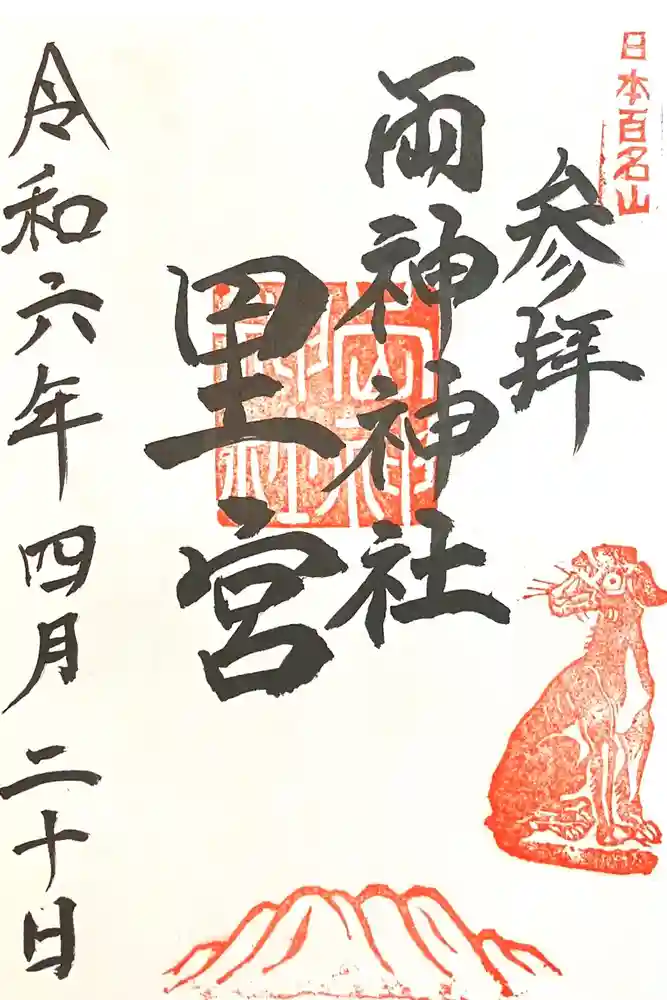 日本百名山
参拝
兩神神社
里宮
令和六年四月二十日